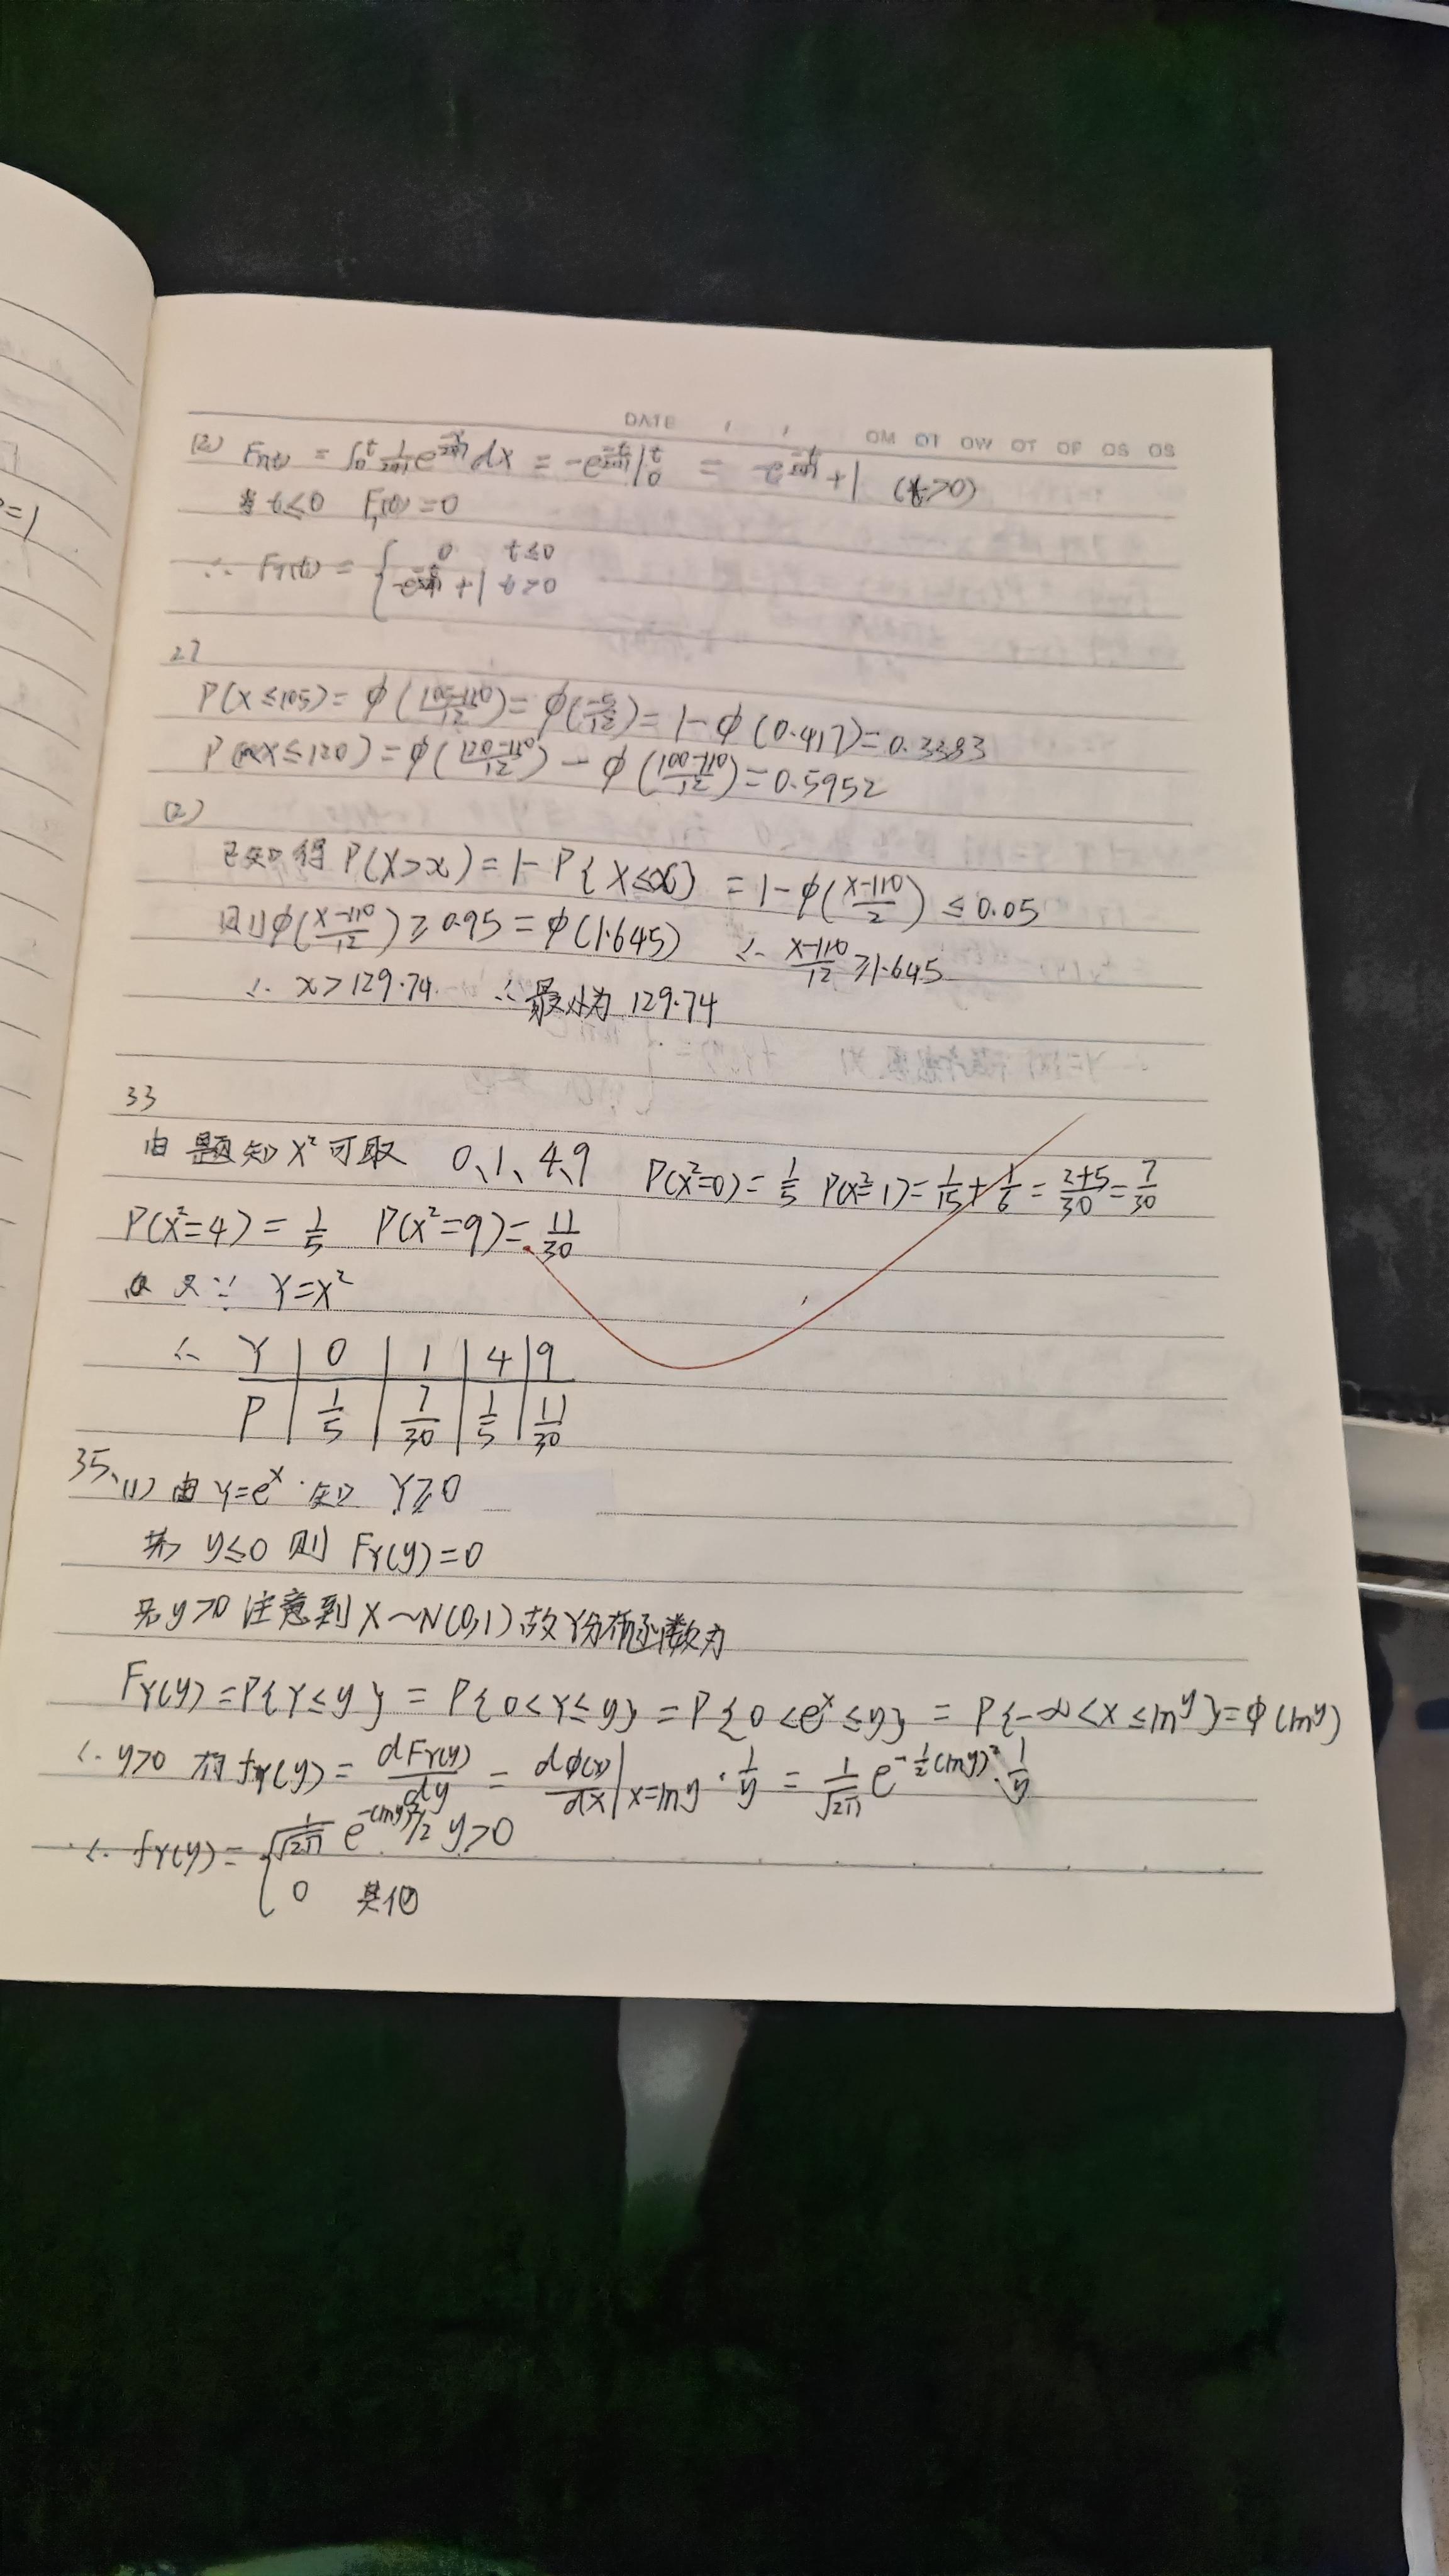 DATE / / OM OT OW OT OF OS OS
(2) F_T(t) = ∫₀ᵗ 1/241 e^(-x/241) dx = -e^(-t/241) |₀ᵗ = -e^(-t/241) + 1 (t>0)
当 t≤0 F_T(t) = 0
∴ F_T(t) = { 0 t≤0
-e^(-t/241) + 1 t>0
=1
27
P(X≤105) = φ((105-110)/12) = φ(-5/12) = 1-φ(0.417) = 0.3383
P(X≤120) = φ((120-110)/12) - φ((100-110)/12) = 0.5952
(2)
已知得 P(X>x) = 1-P{X≤x} = 1-φ((x-110)/2) ≤ 0.05
则φ((x-110)/12) ≥ 0.95 = φ(1.645) ∴ (x-110)/12 ≥ 1.645
∴ x>129.74 ∴最小为 129.74
33
由题知X²可取 0、1、4、9 P(X²=0) = 1/5 P(X²=1) = 1/15 + 1/6 = (2+5)/30 = 7/30
P(X²=4) = 1/5 P(X²=9) = 11/30
又∵ Y=X²
∴ Y | 0 | 1 | 4 | 9
P | 1/5 | 7/30 | 1/5 | 11/30
35、(1) 由 Y=e^x 知 Y≥0
若 y≤0 则 F_Y(y)=0
若y>0 注意到 X~N(0,1) 故Y分布函数为
F_Y(y) = P{Y≤y} = P{0<Y≤y} = P{0<e^x≤y} = P{-∞<X≤ln y} = φ(ln y)
∴ y>0 有 f_Y(y) = dF_Y(y)/dy = dφ(x)/dx |x=ln y · 1/y = 1/√(2π) e^(-1/2(ln y)²) · 1/y
∴ f_Y(y) = { 1/√(2π) e^(-(ln y)²/2) y>0
0 其他